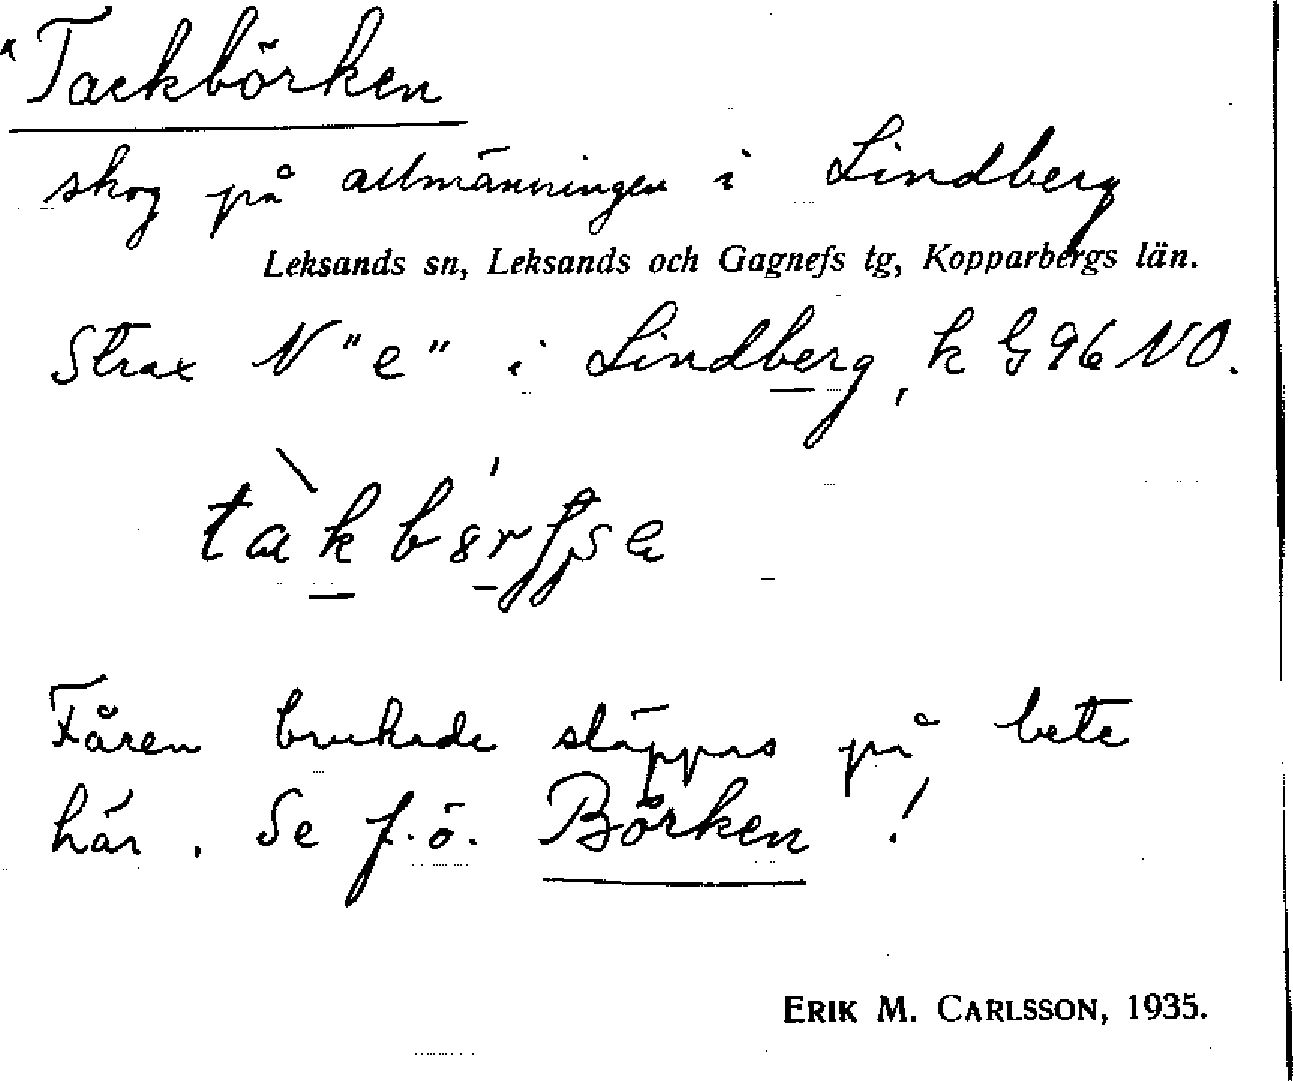 Tackbörken
skog på allmänningen i Lindberg
Leksands sn, Leksands och Gagnefs tg, Kopparbergs län.
Strax N "e" i Lindberg, k G 96 NO.
Fåren brukade släppas på bete
här. Se f.ö. Börken!
ERIK M. CARLSSON, 1935.